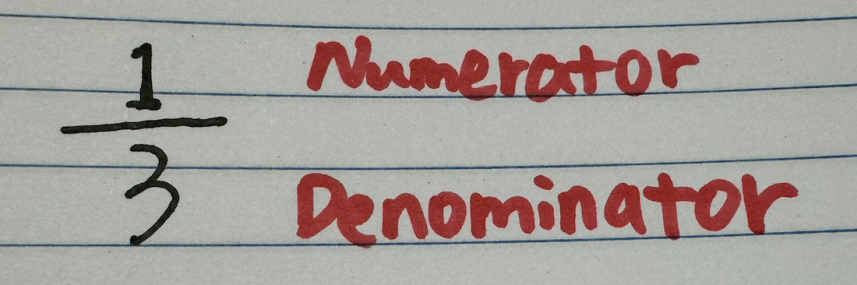 1 Numerator
3 Denominator